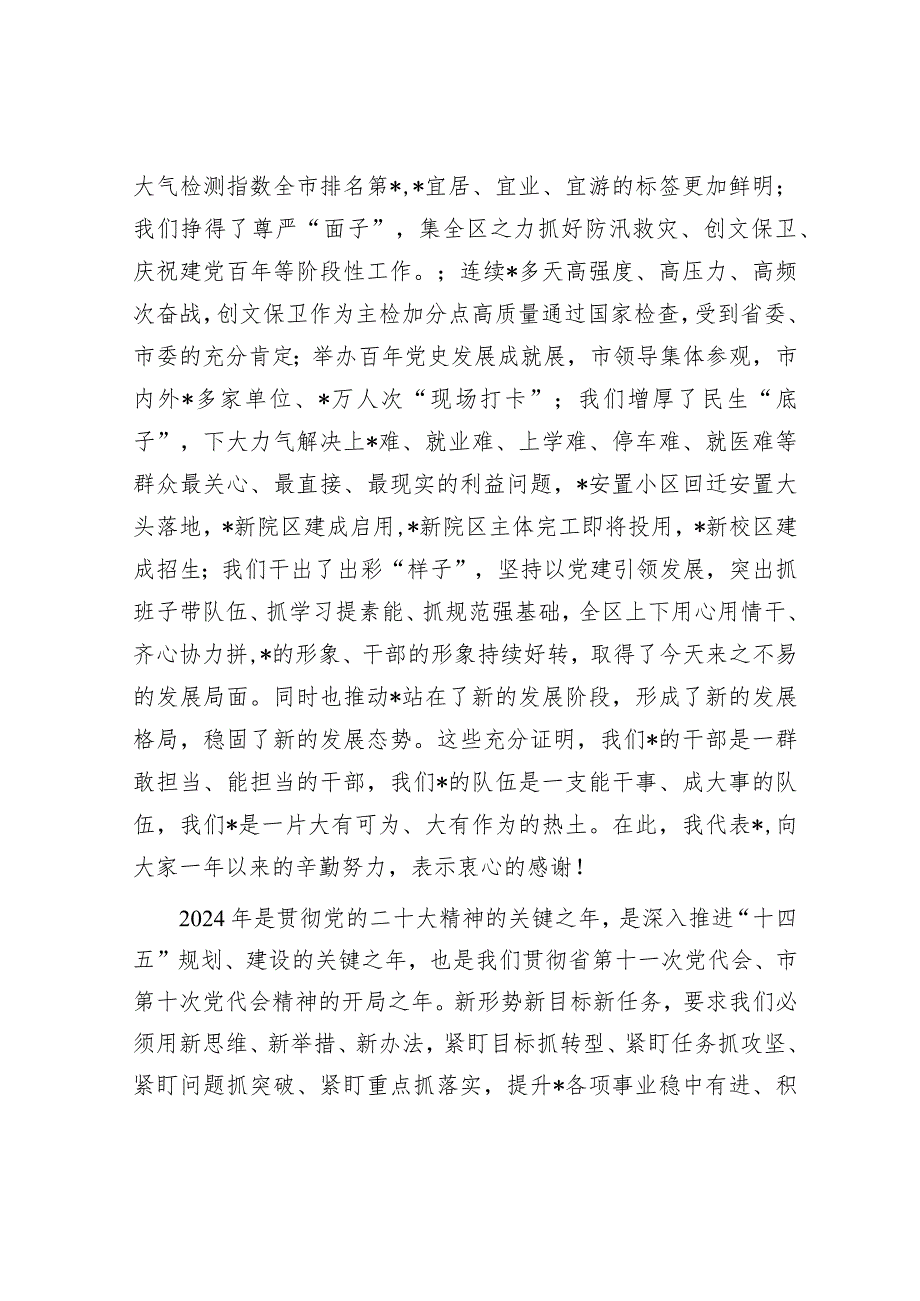 大气检测指数全市排名第*,*宜居、宜业、宜游的标签更加鲜明；
我们挣得了尊严“面子”，集全区之力抓好防汛救灾、创文保卫、
庆祝建党百年等阶段性工作。；连续*多天高强度、高压力、高频
次奋战,创文保卫作为主检加分点高质量通过国家检查,受到省委、
市委的充分肯定；举办百年党史发展成就展，市领导集体参观，市
内外*多家单位、*万人次“现场打卡”；我们增厚了民生“底
子”，下大力气解决上*难、就业难、上学难、停车难、就医难等
群众最关心、最直接、最现实的利益问题，*安置小区回迁安置大
头落地，*新院区建成启用,*新院区主体完工即将投用，*新校区建
成招生；我们干出了出彩“样子”，坚持以党建引领发展，突出抓
班子带队伍、抓学习提素能、抓规范强基础，全区上下用心用情干、
齐心协力拼,*的形象、干部的形象持续好转，取得了今天来之不易
的发展局面。同时也推动*站在了新的发展阶段，形成了新的发展
格局，稳固了新的发展态势。这些充分证明，我们*的干部是一群
敢担当、能担当的干部，我们*的队伍是一支能干事、成大事的队
伍，我们*是一片大有可为、大有作为的热土。在此，我代表*,向
大家一年以来的辛勤努力，表示衷心的感谢！
2024年是贯彻党的二十大精神的关键之年，是深入推进“十四
五”规划、建设的关键之年，也是我们贯彻省第十一次党代会、市
第十次党代会精神的开局之年。新形势新目标新任务，要求我们必
须用新思维、新举措、新办法，紧盯目标抓转型、紧盯任务抓攻坚、
紧盯问题抓突破、紧盯重点抓落实，提升*各项事业稳中有进、积